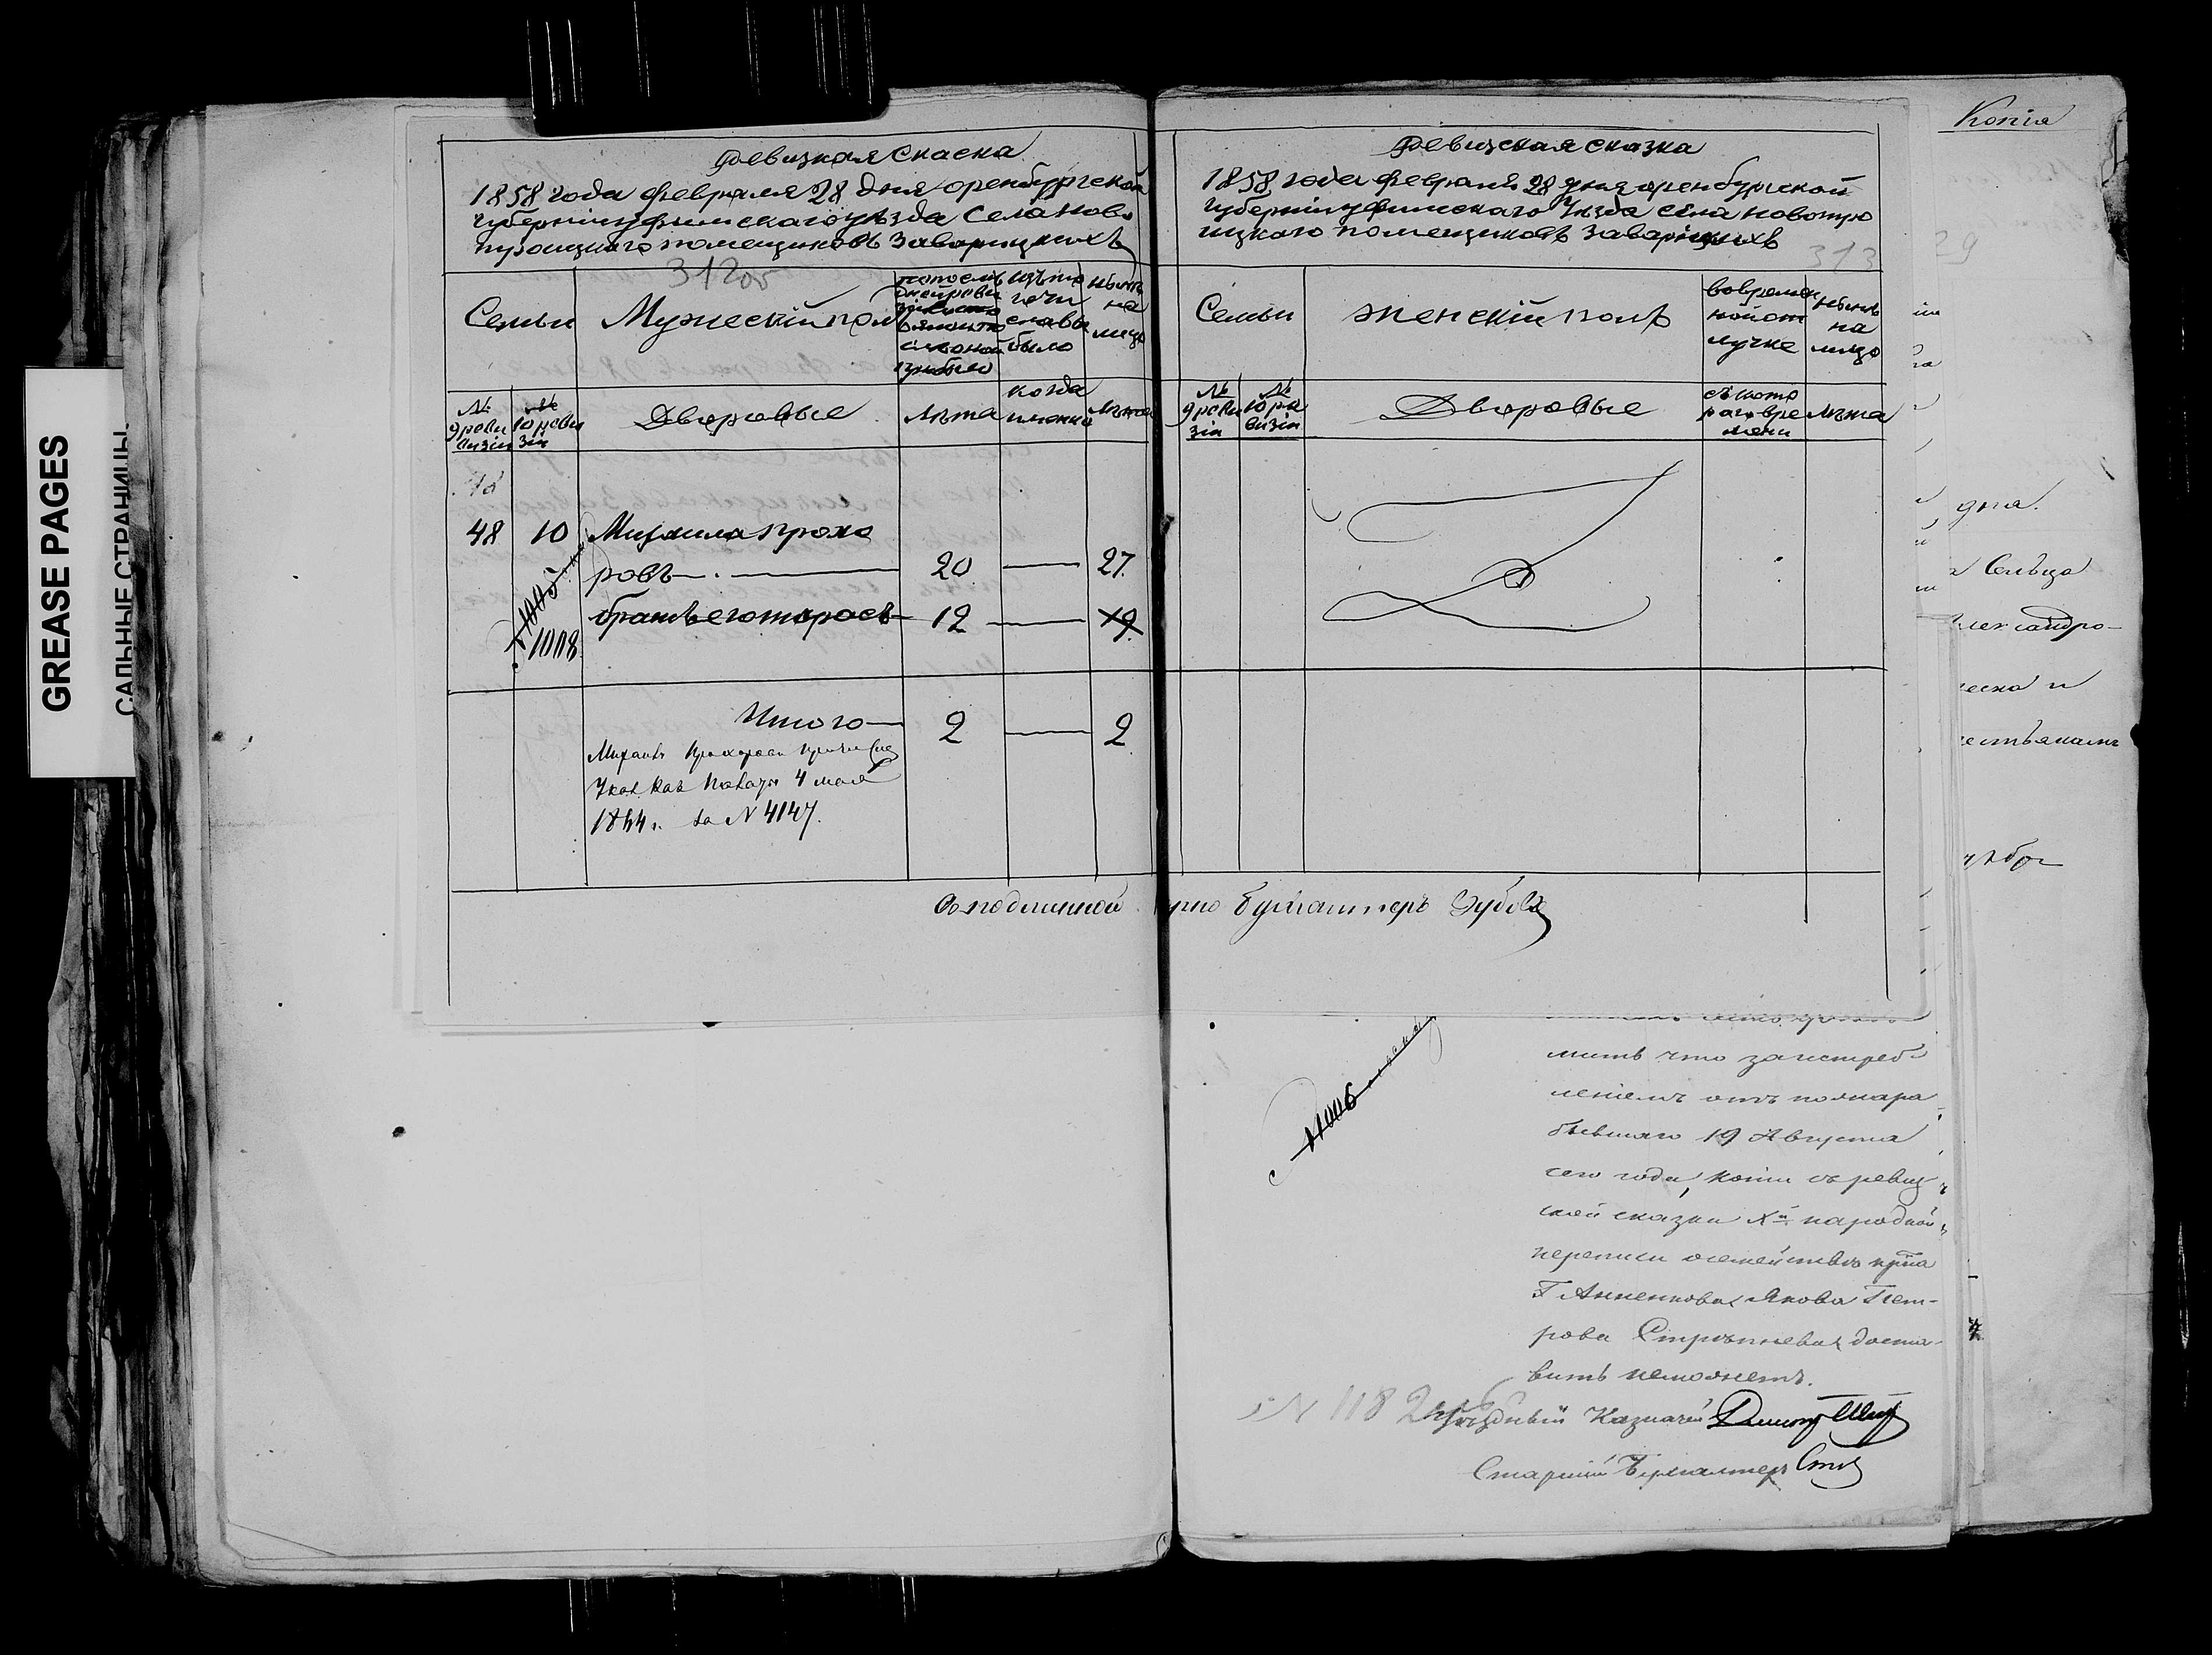 GREASE PAGES
САЛЬНЫЕ СТРАНИЦЫ
Ревизкая скаска
1858 года февраля 28 дня оренбургской
губерніи уфимскаго уѣзда Села Ново
троицкаго помещиковъ Заварицкихъ
312об
Семьи
Мужескій полъ
изъ того
числа
было
нынѣ
на
лицо
№
9 реви
визіи
№
10 реви
зіи
Дворовые
Лѣта
когда
имянно
Лѣта
48
48 10 Михаила прохо
ровъ 20 27
братъ его тарасъ 12 19
1005
1008
Итого 2 2
Михаилъ Прохоровъ
Указ. Каз. Палаты 4 мая
1864 г. за N 4147.
Ревизская сказка
1858 года февраля 28 дня оренбургской
губерніи уфимскаго Уѣзда села новотро
ицкаго помещиковъ Заварицкихъ
313
Семьи
женскій полъ
вовремен
ной от
лучке
нынѣ
на
лицо
№
9 реви
зіи
№
10 ре
визіи
Дворовые
съ кото
раго вре
мени
лѣта
Съ подлинной рно Бухгалтеръ Зубовъ
1006
мить что за истреб
леніемъ отъ пожара
бывшаго 19 Августа
сего года, копіи съ ревиз
ской сказки Хй народной
переписи о семействѣ
Г. Анненкова Якова Пет-
рова доста-
вить неможетъ.
N 1182
Уѣздный Казначей
Старшій Бухгалтеръ
Копія
29
дня.
Сельца
Александро-